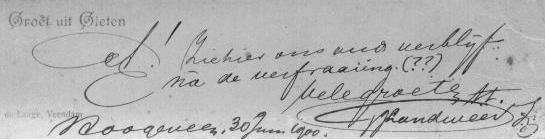 Groet uit Gieten
Ziehier ons oud verblijf
na de verfraaiing. (??)
vele groeten
de Lange, Veendam
Hoogeveen, 30 Juni 1900.